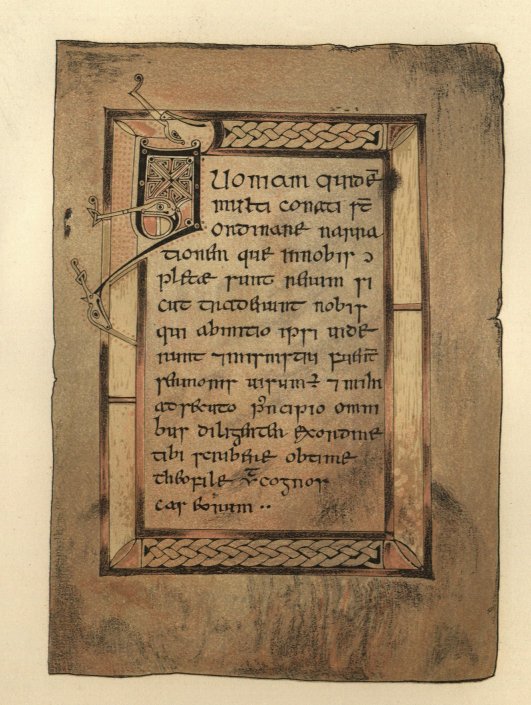 Quoniam quidē
multi conati st̄
ordinare narra
tionem que innobis ɔ
pletæ sunt rerum si
cut traderunt nobis
qui abinitio ipsi uide
runt ⁊ministrii fuer̄t
sermonis uisum ÷ ⁊ mihi
adsecuto p̄ncipio omni
bus diligenter exordine
tibi scribere obtime
theofile cognos
cas eorum ··